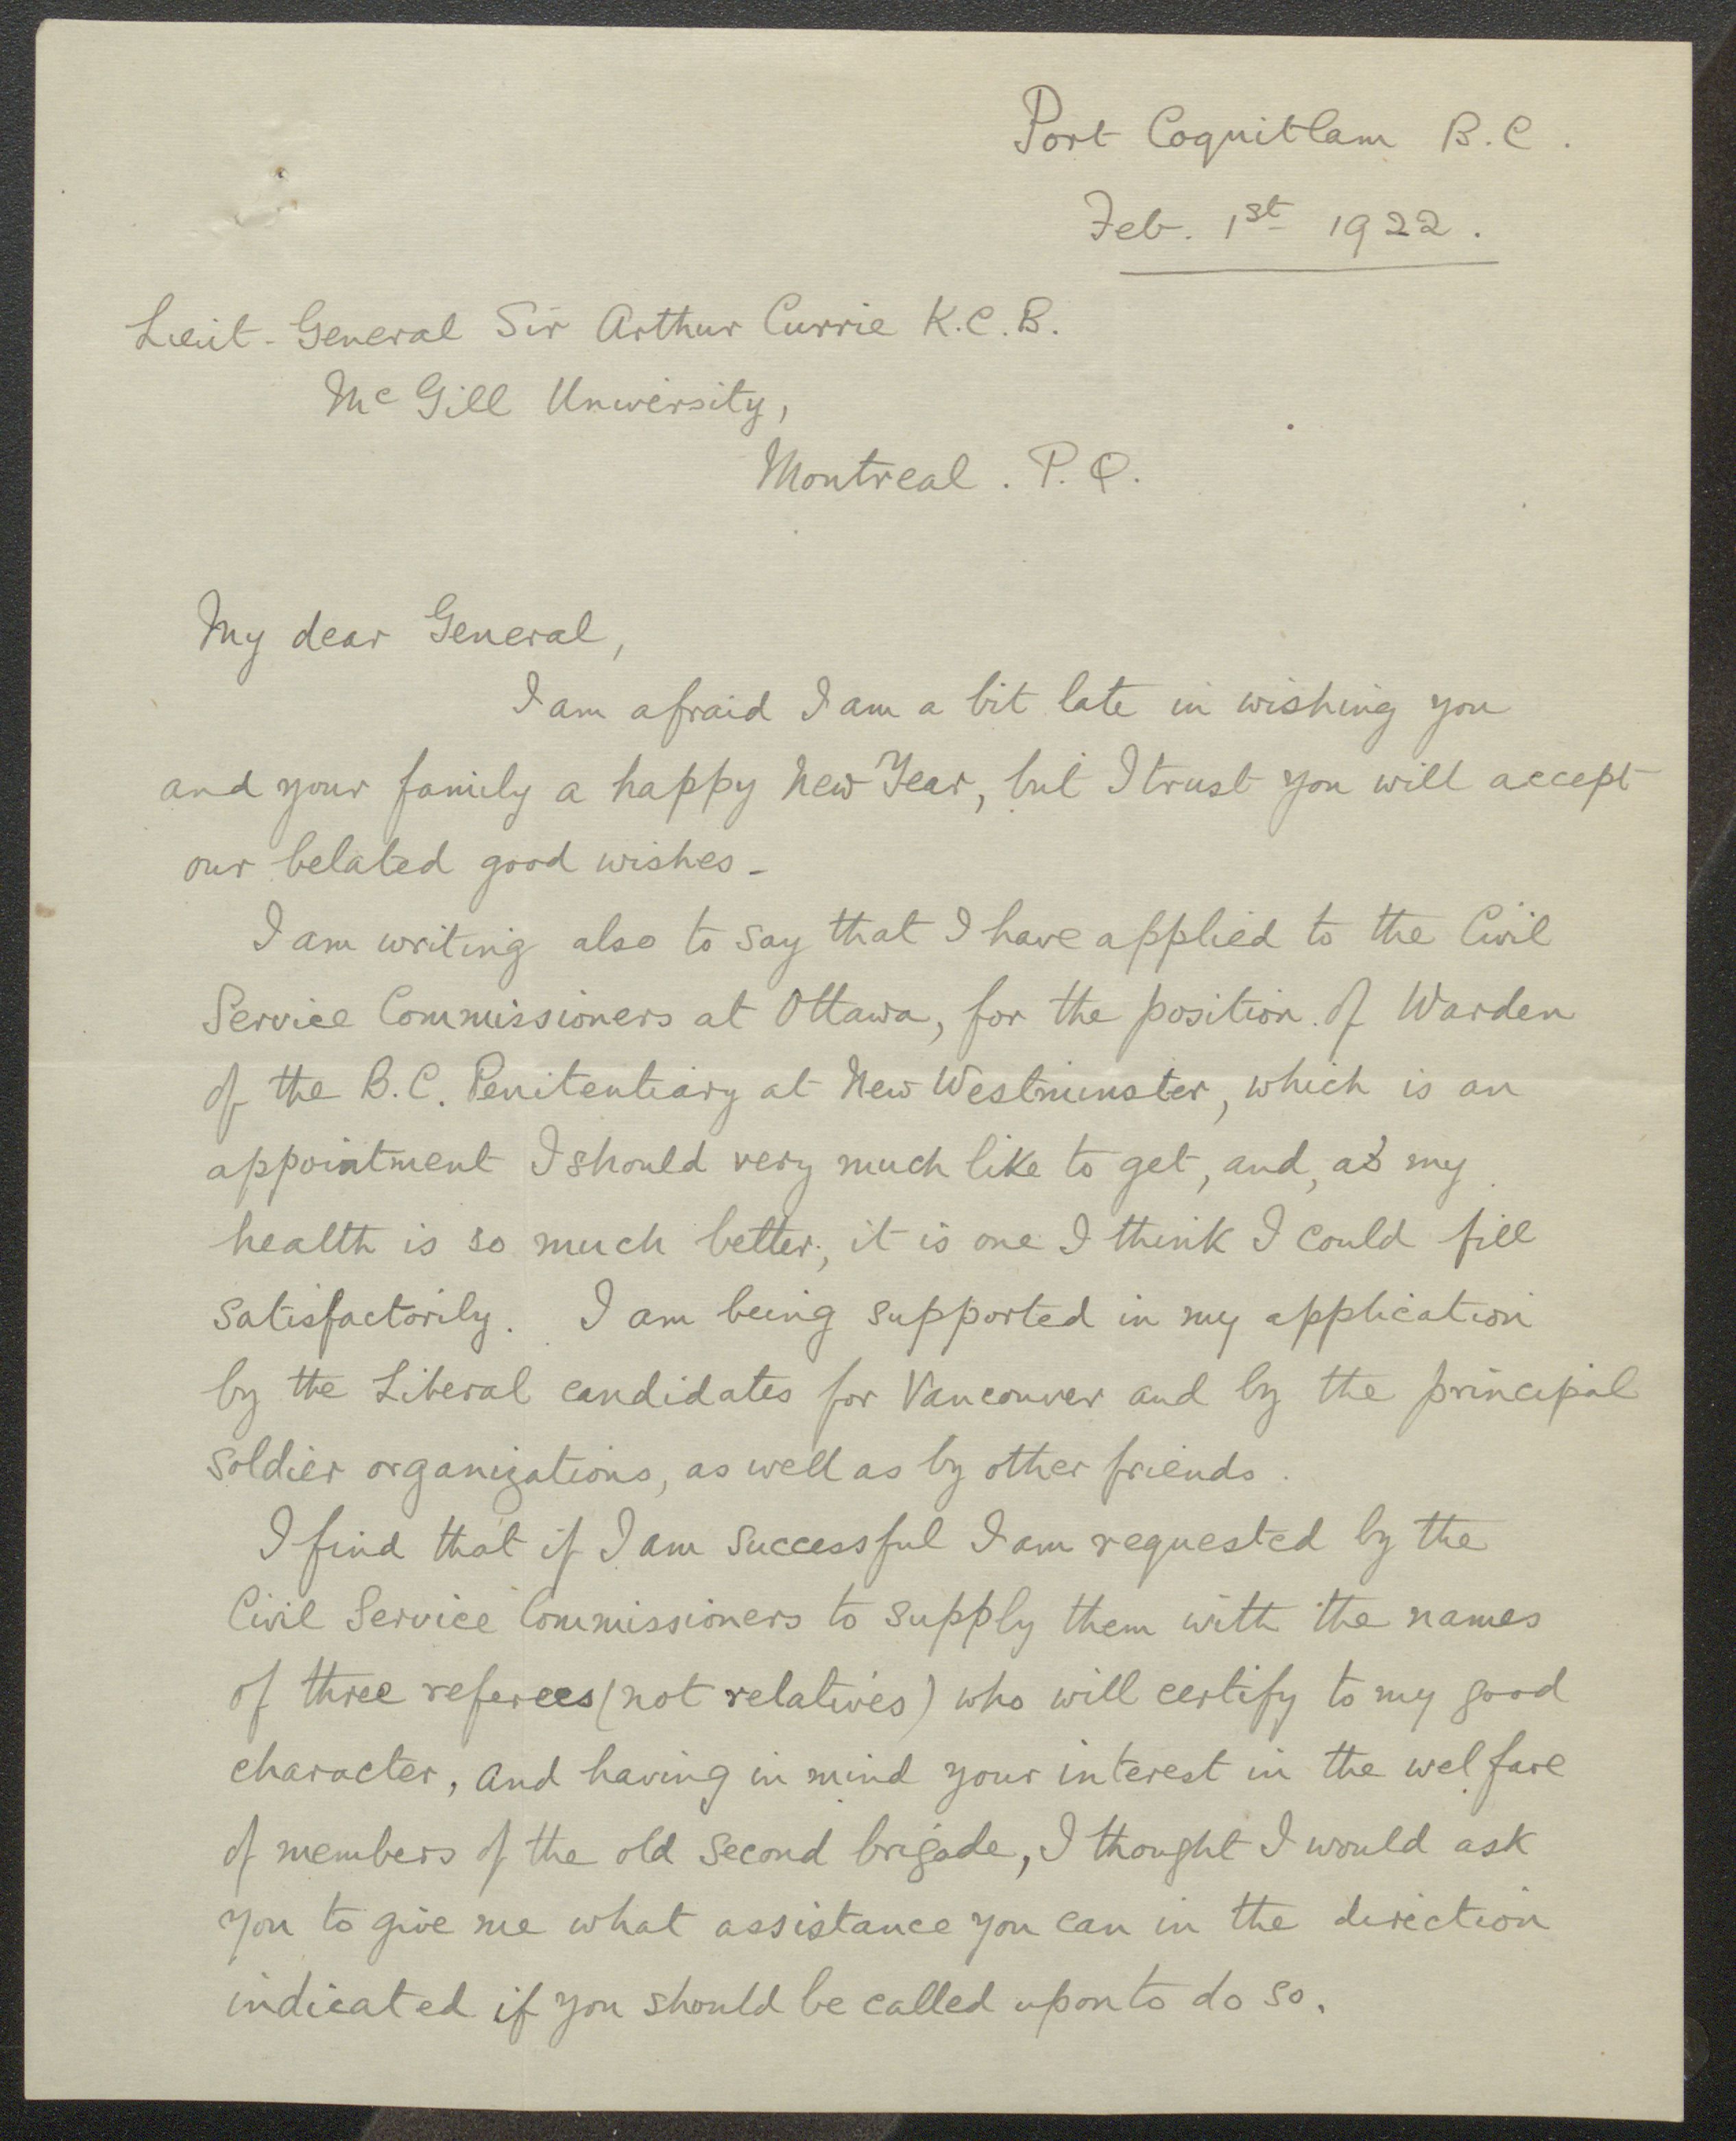 Port Coquitlam B.C.
Feb. 1st 1922.
Lieut-General Sir Arthur Currie K.C.B.
McGill University,
Montreal. P.Q.
My dear General,
I am afraid I am a bit late in wishing you
and your family a happy New Year, but I trust you will accept
our belated good wishes-
I am writing also to say that I have applied to the Civil
Service Commissioners at Ottawa, for the position of Warden
of the B.C. Penitentiary at New Westminster, which is an
appointment I should very much like to get, and, as my
health is so much better, it is one I think I could fill
satisfactorily. I am being supported in my application
by the Liberal candidates for Vancouver and by the principal
soldier organizations, as well as by other friends.
I find that if I am successful I am requested by the
Civil Service Commissioners to supply them with the names
of three referees (not relatives) who will certify to my good
character, and having in mind your interest in the welfare
of members of the old second brigade, I thought I would ask
you to give me what assistance you can in the direction
indicated if you should be called upon to do so.